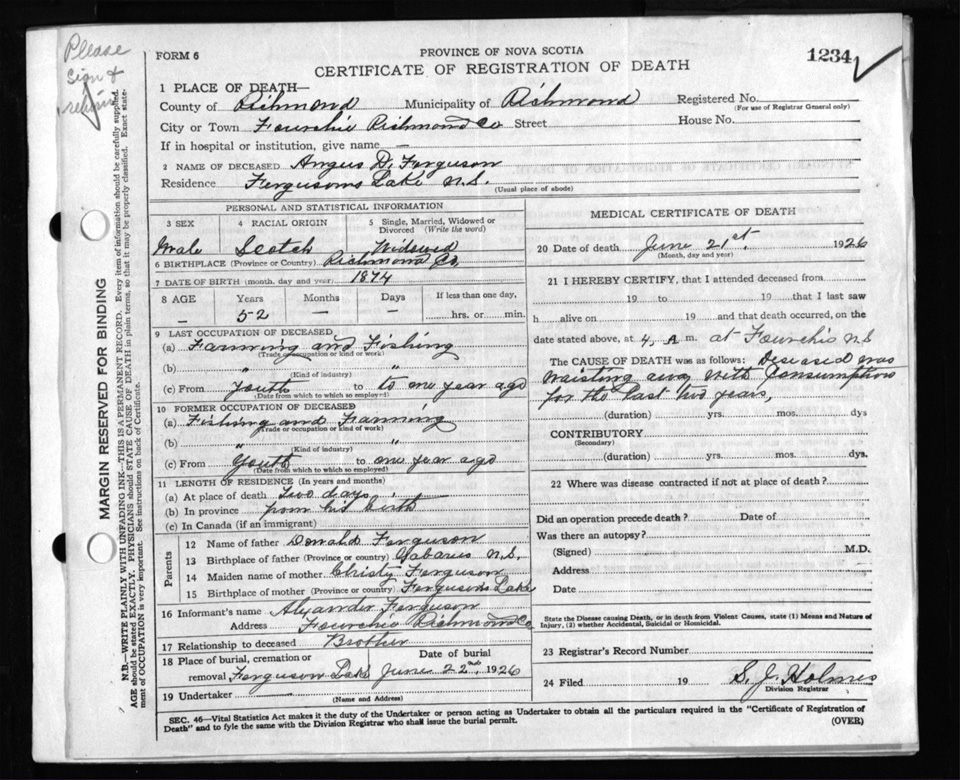 Please
sign &
return
FORM 6
PROVINCE OF NOVA SCOTIA
1234
CERTIFICATE OF REGISTRATION OF DEATH
1 PLACE OF DEATH—
County of Richmond Municipality of Richmond Registered No.
(For use of Registrar General only)
City or Town Fourchie Richmond Co Street House No.
If in hospital or institution, give name —
2 NAME OF DECEASED Angus D. Ferguson
Residence Fergusons Lake N.S. (Usual place of abode)
PERSONAL AND STATISTICAL INFORMATION
3 SEX 4 RACIAL ORIGIN 5 Single, Married, Widowed or Divorced (Write the word)
Male Scotch Widowed
6 BIRTHPLACE (Province or Country) Richmond Co.
7 DATE OF BIRTH (month, day and year) 1874
8 AGE Years Months Days If less than one day,
— 52 — — hrs. or min.
9 LAST OCCUPATION OF DECEASED
(a) Farming and Fishing
(Trade or occupation or kind or work)
(b) " "
(Kind of industry)
(c) From Youth to to one year ago
(Date from which to which so employed)
10 FORMER OCCUPATION OF DECEASED
(a) Fishing and Farming
(Trade or occupation or kind of work)
(b) " "
(Kind of industry)
(c) From Youth to one year ago
(Date from which to which so employed)
11 LENGTH OF RESIDENCE (In years and months)
(a) At place of death two days
(b) In province from his birth
(c) In Canada (if an immigrant)
Parents
12 Name of father Donald Ferguson
13 Birthplace of father (Province or country) Gabarus N.S.
14 Maiden name of mother Christy Ferguson
15 Birthplace of mother (Province or country) Fergusons Lake
16 Informant's name Alyander Ferguson
Address Fourchie Richmond Co
17 Relationship to deceased Brother
18 Place of burial, cremation or Date of burial
removal Ferguson Lake June 22nd 1926
19 Undertaker
(Name and Address)
MEDICAL CERTIFICATE OF DEATH
20 Date of death June 21st. 1926
(Month, day and year)
21 I HEREBY CERTIFY, that I attended deceased from
19 to 19 that I last saw
h alive on 19 and that death occurred, on the
date stated above, at 4. A. m. at Fourchie N.S
The CAUSE OF DEATH was as follows: Deseased was
waisting away with Consumption
for the last two years,
(duration) yrs. mos. dys
CONTRIBUTORY
(Secondary)
(duration) yrs. mos. dys.
22 Where was disease contracted if not at place of death?
Did an operation precede death? Date of
Was there an autopsy?
(Signed) M.D.
Address
Date
State the Disease causing Death, or in death from Violent Causes, state (1) Means and Nature of
Injury, (2) whether Accidental, Suicidal or Homicidal.
23 Registrar's Record Number
24 Filed 19 S. J. Holmes
Division Registrar
SEC. 46—Vital Statistics Act makes it the duty of the Undertaker or person acting as Undertaker to obtain all the particulars required in the "Certificate of Registration of
Death" and to fyle the same with the Division Registrar who shall issue the burial permit. (OVER)
MARGIN RESERVED FOR BINDING
N.B.—WRITE PLAINLY WITH UNFADING INK—THIS IS A PERMANENT RECORD. Every item of information should be carefully supplied.
AGE should be stated EXACTLY. PHYSICIANS should STATE CAUSE OF DEATH in plain terms, so that it may be properly classified. Exact state-
ment of OCCUPATION is very important. See instructions on back of Certificate.